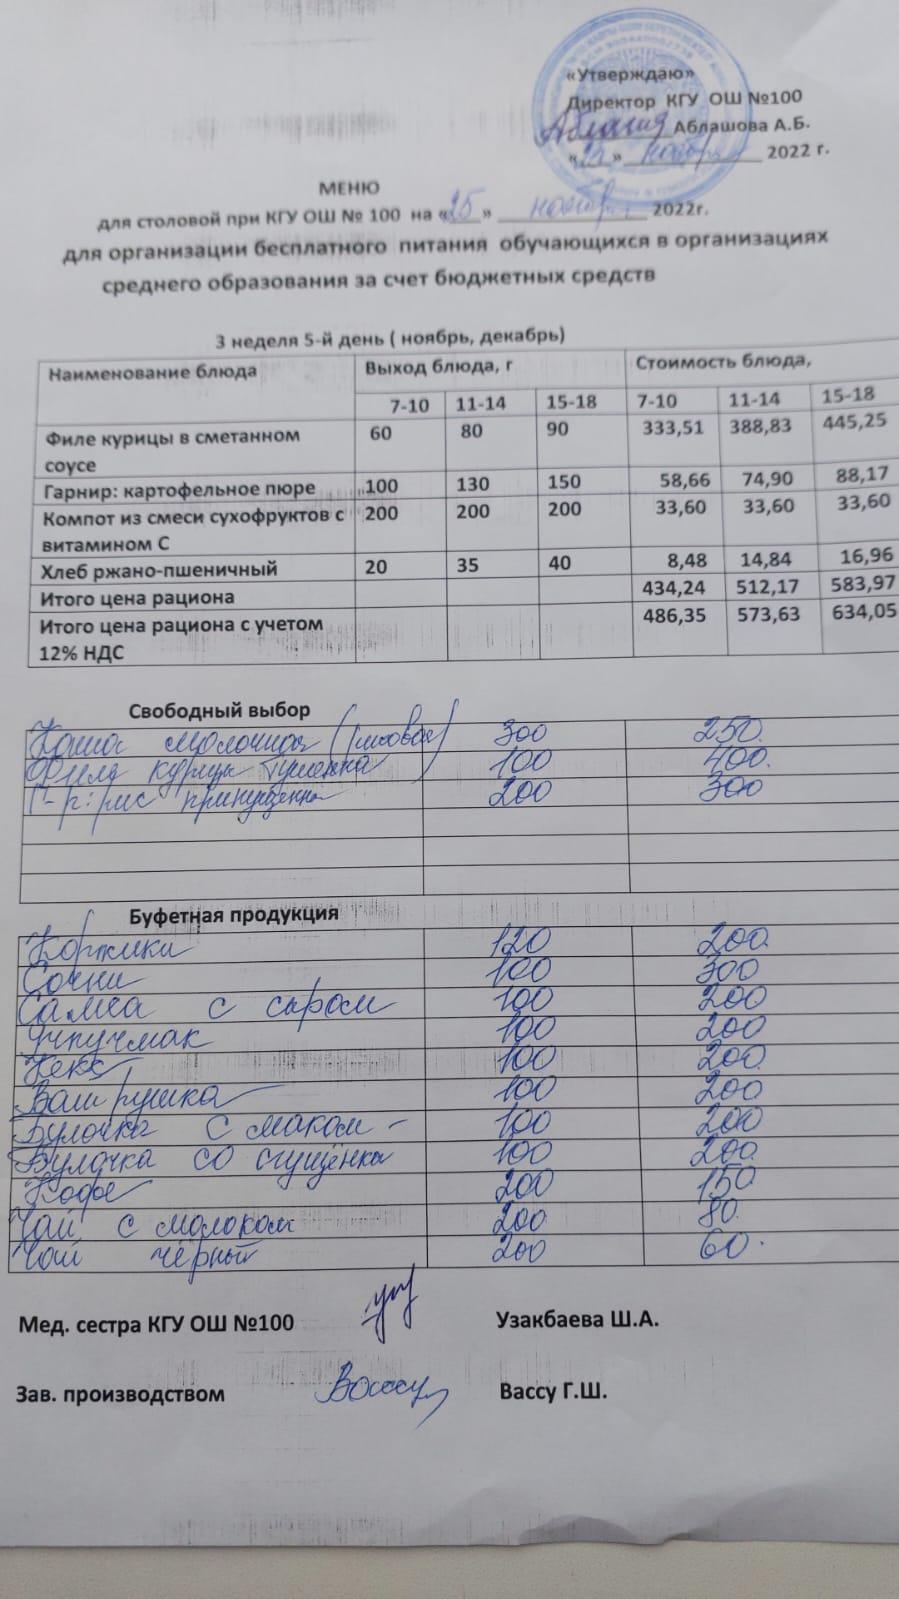 «Утверждаю»
Директор КГУ ОШ №100
Аблашова А.Б.
«25» ноября 2022 г.
МЕНЮ
для столовой при КГУ ОШ № 100 на «25» ноября 2022г.
для организации бесплатного питания обучающихся в организациях
среднего образования за счет бюджетных средств
3 неделя 5-й день ( ноябрь, декабрь)
Наименование блюда Выход блюда, г Стоимость блюда,
7-10 11-14 15-18 7-10 11-14 15-18
Филе курицы в сметанном 60 80 90 333,51 388,83 445,25
соусе
Гарнир: картофельное пюре 100 130 150 58,66 74,90 88,17
Компот из смеси сухофруктов с 200 200 200 33,60 33,60 33,60
витамином С
Хлеб ржано-пшеничный 20 35 40 8,48 14,84 16,96
Итого цена рациона 434,24 512,17 583,97
Итого цена рациона с учетом 486,35 573,63 634,05
12% НДС
Свободный выбор
Каша молочная (рисовая) 300 250.
Филе курицы 100 400.
Г-р: рис 200 300
Буфетная продукция
Коржики 120 200.
Сочни 100 300
Самса с сыром 100 200
Учпучмак 100 200
Кекс 100 200.
Ватрушка 100 200
Булочка с маком - 100 200
Булочка со сгущёнка 100 200.
Кофе 200 150
Чай с молоком 200 80.
Чай чёрный 200 60.
Мед. сестра КГУ ОШ №100 Узакбаева Ш.А.
Зав. производством Вассу Вассу Г.Ш.